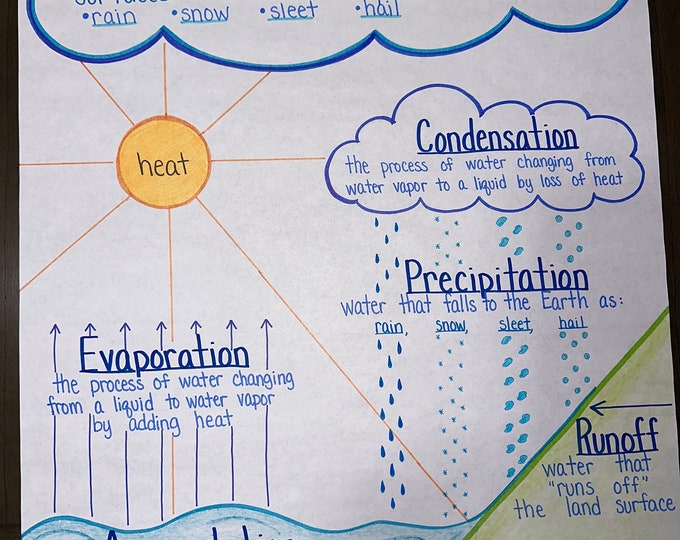 • rain • snow • sleet • hail
heat
Condensation
the process of water changing from
water vapor to a liquid by loss of heat
Precipitation
water that falls to the Earth as:
rain, snow, sleet, hail
Evaporation
the process of water changing
from a liquid to water vapor
by adding heat
Runoff
water that
"runs off"
the land surface